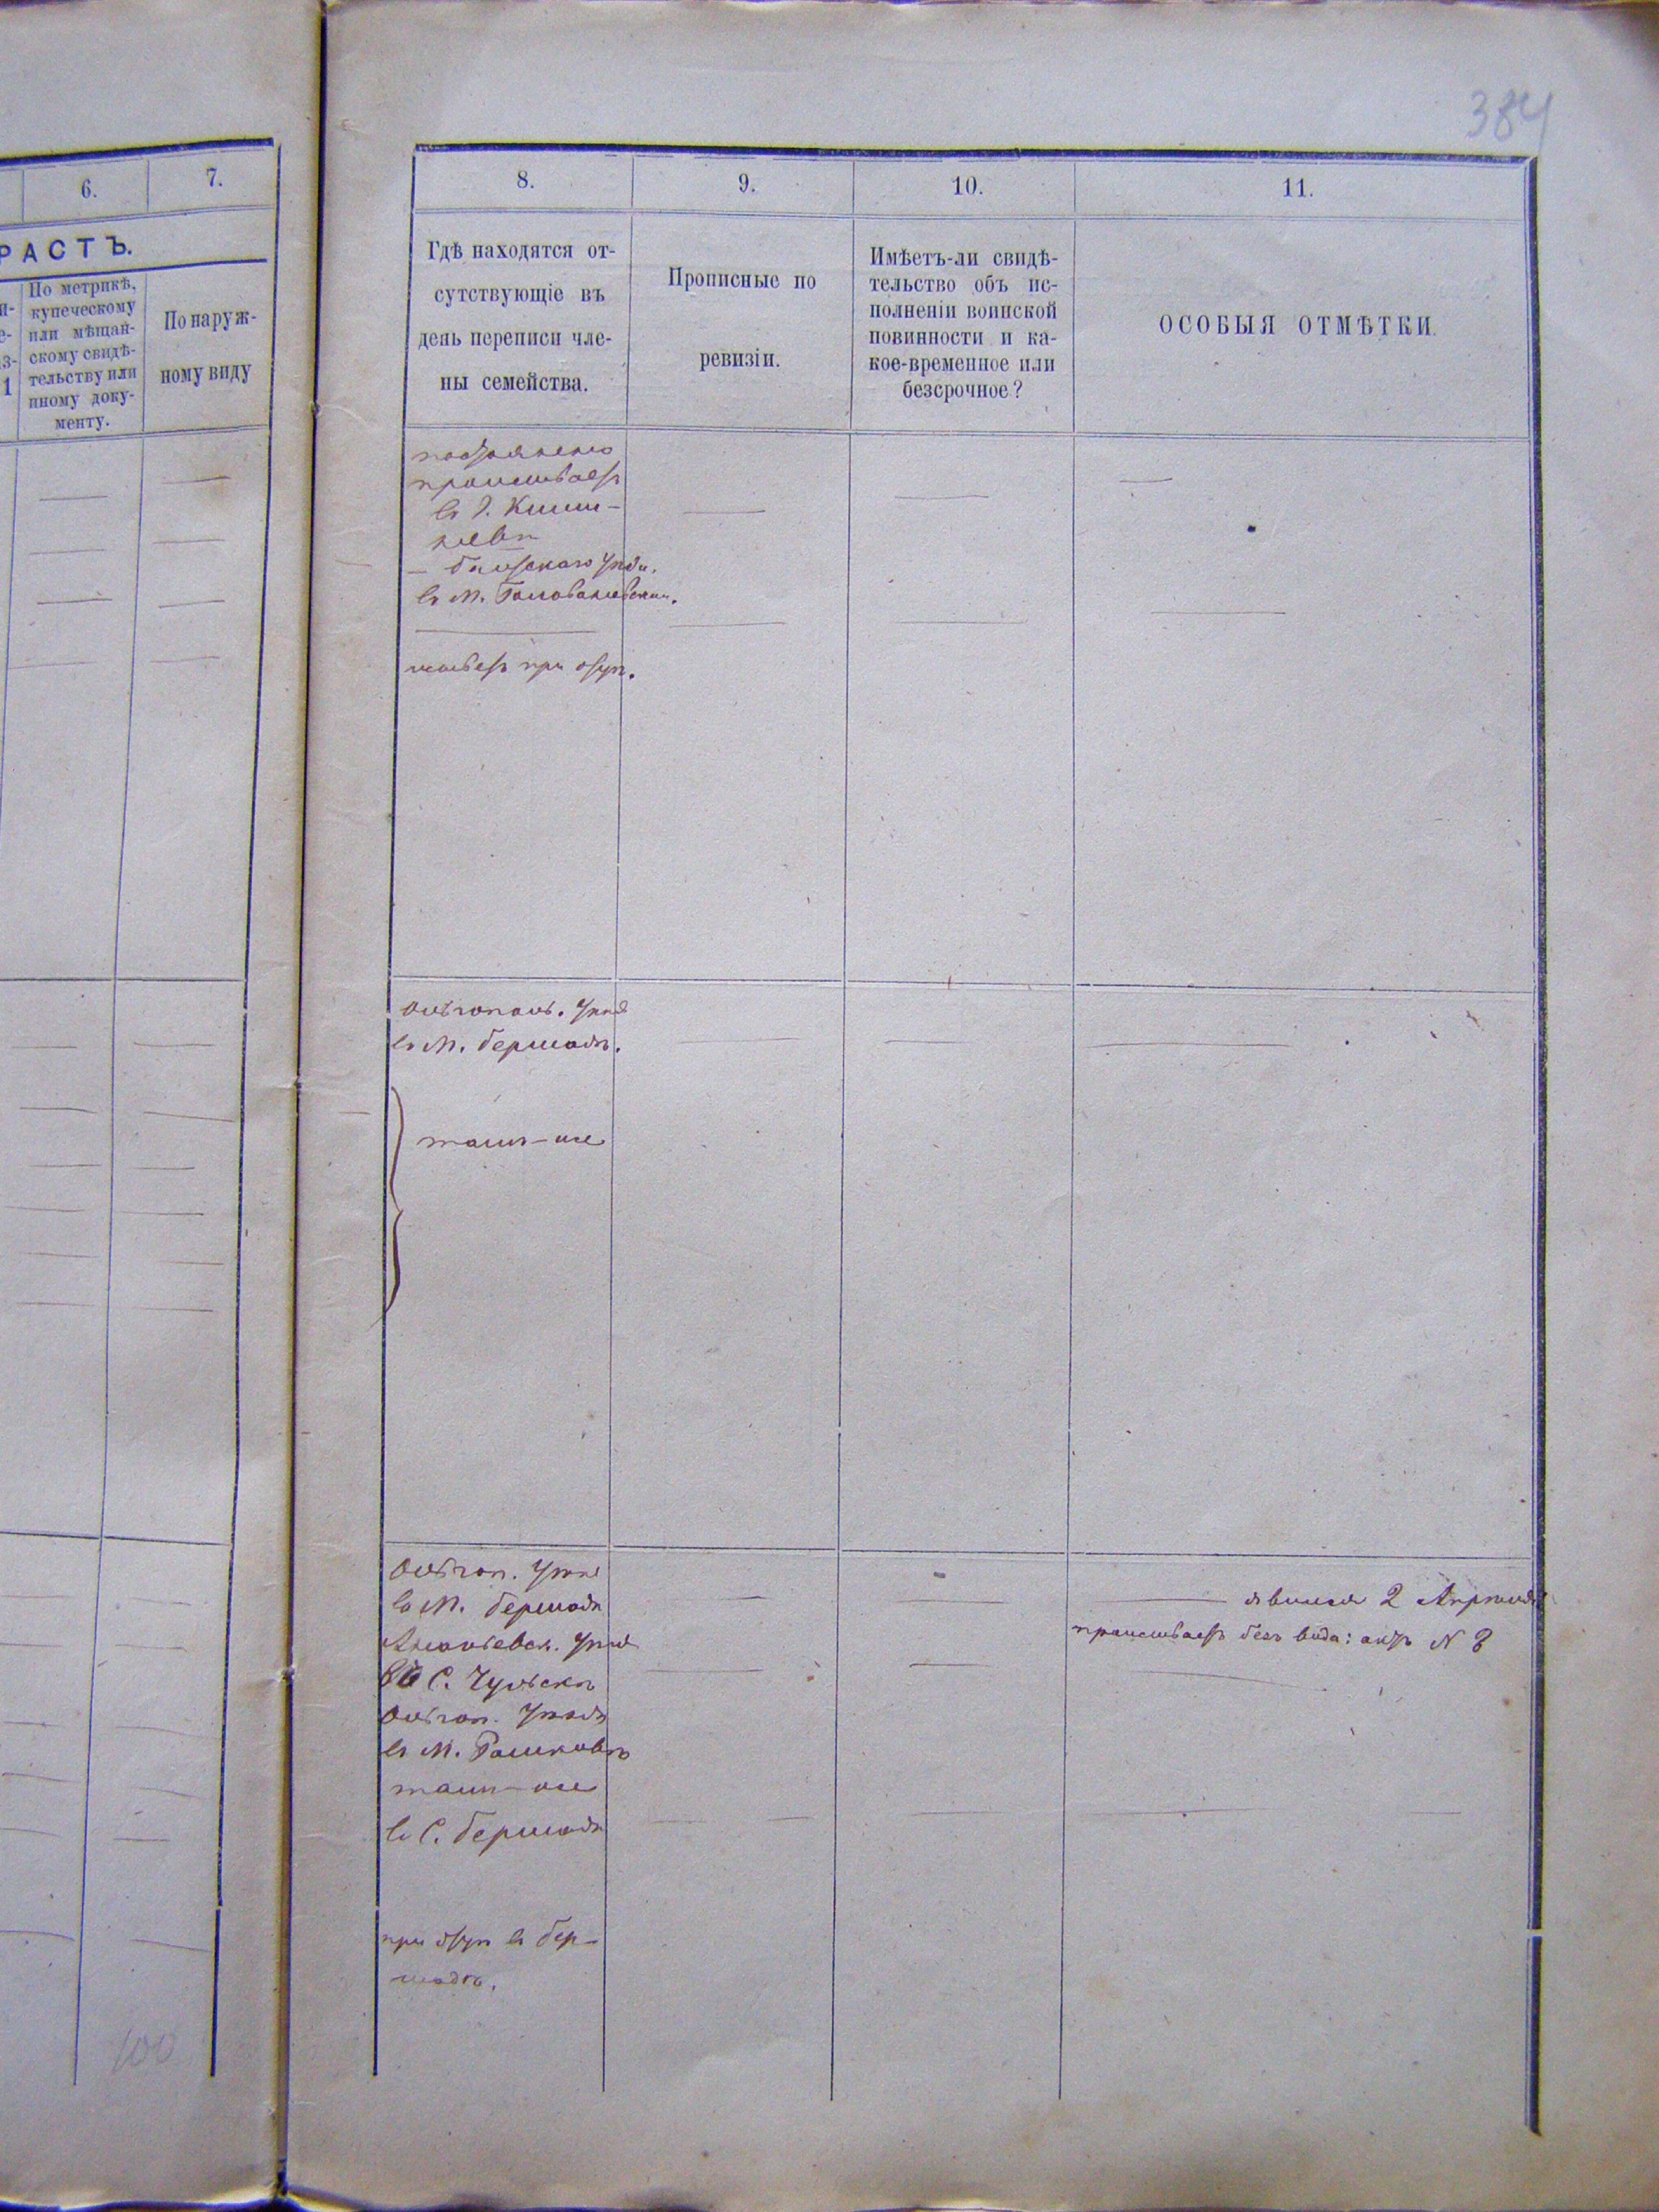 384
6.
7.
РАСТЪ.
По метрикѣ,
купеческому
или мѣщан-
скому свидѣ-
тельству или
иному доку-
менту.
По наруж-
ному виду
8.
9.
10.
11.
Гдѣ находятся от-
сутствующіе въ
день переписи чле-
ны семейства.
Прописные по
ревизіи.
Имѣетъ-ли свидѣ-
тельство объ ис-
полненіи воинской
повинности и ка-
кое-временное или
безсрочное?
ОСОБЫЯ ОТМѢТКИ.
постоянно
проживаетъ
въ г. Киши-
невѣ
Балтскаго уѣзд.
въ М. Голованевскѣ.
живетъ при отцѣ.
Ольгопол. уѣзд
въ М. Бершадѣ.
тамъ-же
Ольгоп. уѣзд
въ М. Бершадѣ
Ананьевск. уѣзд
С.
Ольгоп. уѣзда
въ М. Рашковѣ
тамъ-же
въ С. Бершадѣ
при отцѣ въ Бер-
шадѣ.
явился 2 Апрѣля
проживаетъ безъ вида: актъ N 8
100